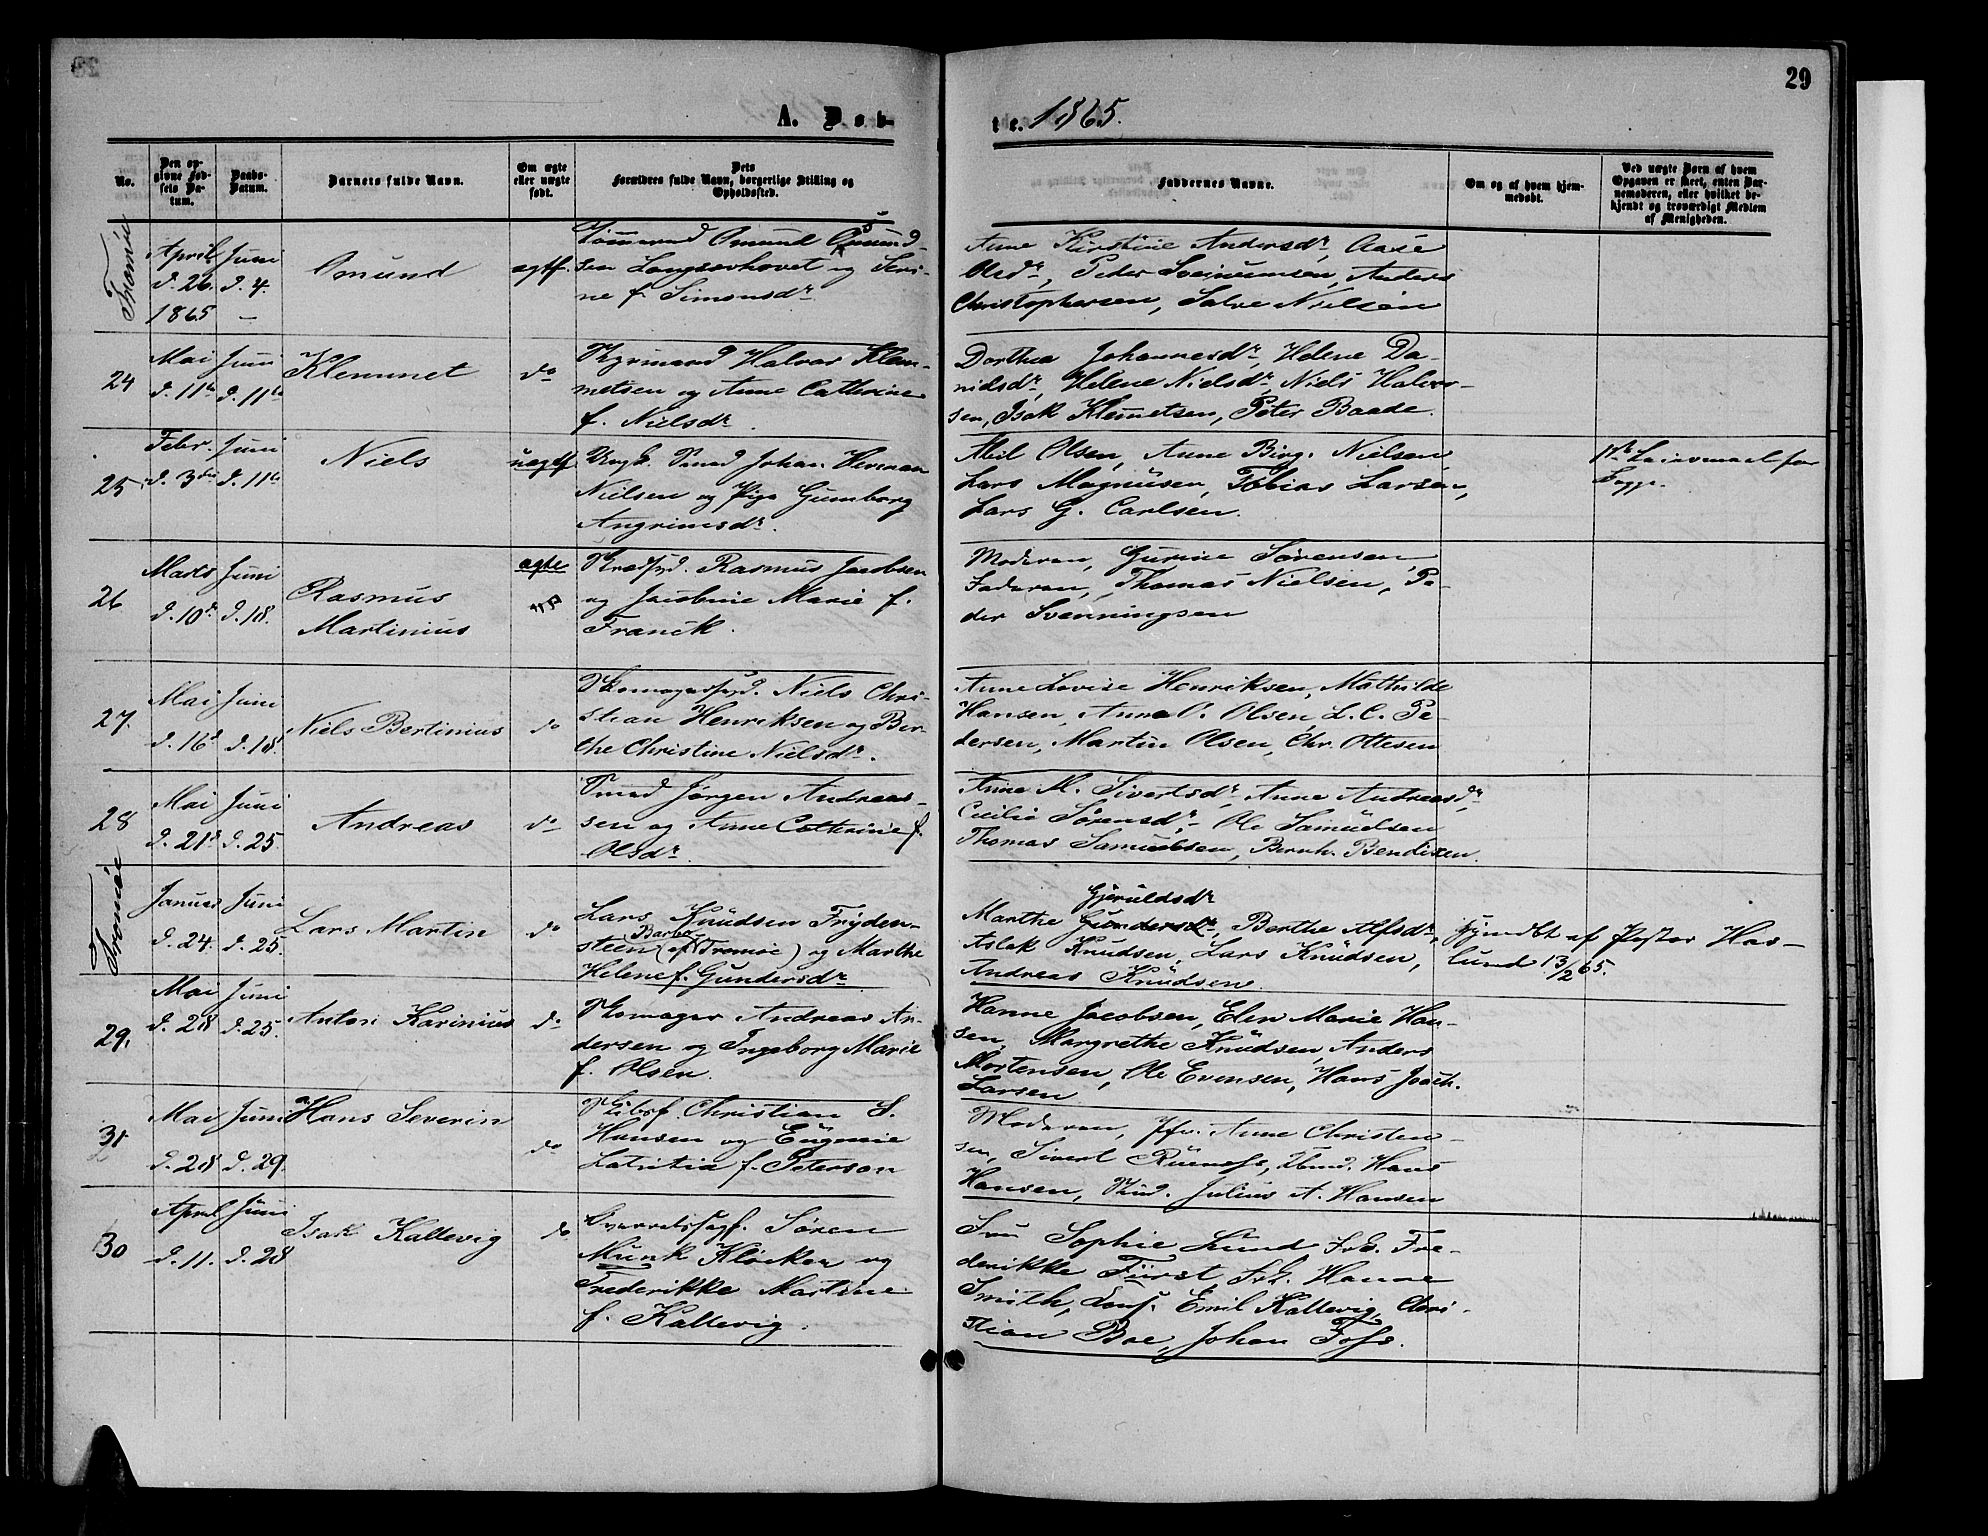 29
A. Døb-
te. 1865.
No.
Den opgivne Fødsels Datum.
Daabs-Datum.
Barnets fulde Navn.
Om ægte eller uægte født.
Dets Forældres fulde Navn, borgerlige Stilling og Opholdssted.
Faddernes Navne.
Om og af hvem hjemmedøbt.
Ved uægte Børn af hvem Opgaven er skeet, enten Barnemoderen, eller hvilket bekjendt og troværdigt Medlem af Menigheden.
Tromöe
April Juni
d. 26. d. 4.
1865 —
Omund
ægtf.
Tømmermd Omund Omund-
sen Langsævhovet og Seri-
ne f. Simonsdr
Anne Kirstine Andersdr, Aase
Olsdr, Peder Sveinumsen, Anders
Christophersen, Salve Nielsen
24
Mai Juni
d. 11te d. 11te
Klemmet
do
Halvor Klem-
metsen og Anne Cathrine
f. Nielsdr.
Dorthea Johannesdr, Helene Da-
nidsdr, Helene Nielsdr, Niels Halvor-
sen, Isak Klemetsen, Peter Baade.
25
Febr. Juni
d. 3die d. 11te
Niels
uægtf
Ungk. Smed Johan Herman
Nielsen og Pige Gumborg
Angrimsdr.
Abel Olsen, Anne Birg. Nielsen
Lars Magnüsen, Tobias Larsen,
Lars G. Carlsen.
1ste Leiermaal for
Begge.
26
Marts Juni
d. 10de d. 18.
Rasmus
Martinius
ægte
Rasmus Jacobsen
og Jacobine Marie f.
Franck.
Moderen, Gurine Sørensen
Faderen, Thomas Nielsen, Pe-
der Svenningsen
27.
Mai Juni
d. 16d d. 18.
Niels Bertinius
do
Skomagersv. Niels Chri-
stian Henriksen og Ber-
the Christine Nielsdr.
Anne Lovise Henriksen, Mathilde
Hansen, Anne O. Olsen, L. C. Pe-
dersen, Martin Olsen, Chr. Ottesen
28
Mai Juni
d. 21d d. 25.
Andreas
do
Smed Jørgen Andreas-
sen og Anne Cathrine f.
Olsdr.
Anne M. Sivertsdr, Anne Andreasdr,
Cecilie Sørensdr, Ole Samüelsen
Thomas Samuelsen, Bernh. Bendixen.
Tromöe
Januar Juni
d. 24. d. 25.
Lars Martin
do
Lars Knüdsen Fryden-
Barbo
steen (af Tromøe) og Marthe
Helene f. Gundersdr
Gjeruldsdr
Marthe Gundersdr, Berthe Alfsdr,
Aslak Knüdsen, Lars Knüdsen,
Andreas Knüdsen.
hjemdbt af Pastor Has-
lund 13/2 65.
29.
Mai Juni
d. 28 d. 25.
Anton Karinius
do
Skomager Andreas An-
dersen og Ingeborg Marie
f. Olsen.
Hanne Jacobsen, Elen Marie Han-
sen, Margrethe Knüdsen, Anders
Mortensen, Ole Evensen, Hans Joach.
Larsen
31
Mai Juni
d. 28 d. 29.
Hans Severin
do
Skibsf. Christian S.
Hansen og Eügenie
Latritia f. Peterson
Moderen, Jfr. Anne Christen-
sen, Sivert Hans
Hansen, Stud. Julius A. Hansen
30
April Juni
d. 11. d. 28
Isak Kallevig
do
Overretssagf. Søren
Munk Kløcker og
Frederikke Martine
f. Kallevig.
Fru Sophie Lund Frk. Fre-
derikke Fürst, Frk. Hanne
Smith, Cons. Emil Kallevig, Chri-
stian Boe, Johan Foss.